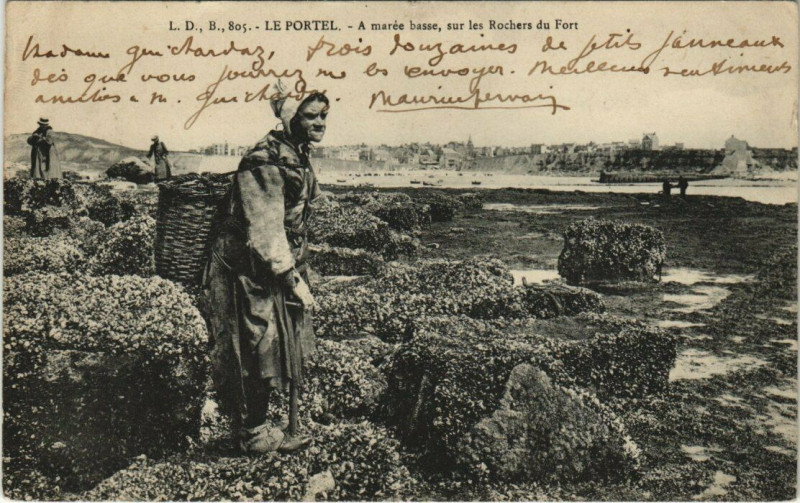 L. D., B., 805. - LE PORTEL. - A marée basse, sur les Rochers du Fort
Madame Guichardaz, trois douzaines de petits Janneaux
dès que vous pourrez me les envoyer. Meilleurs sentiments
amitiés a M. Guichardaz. Maurice Gervais